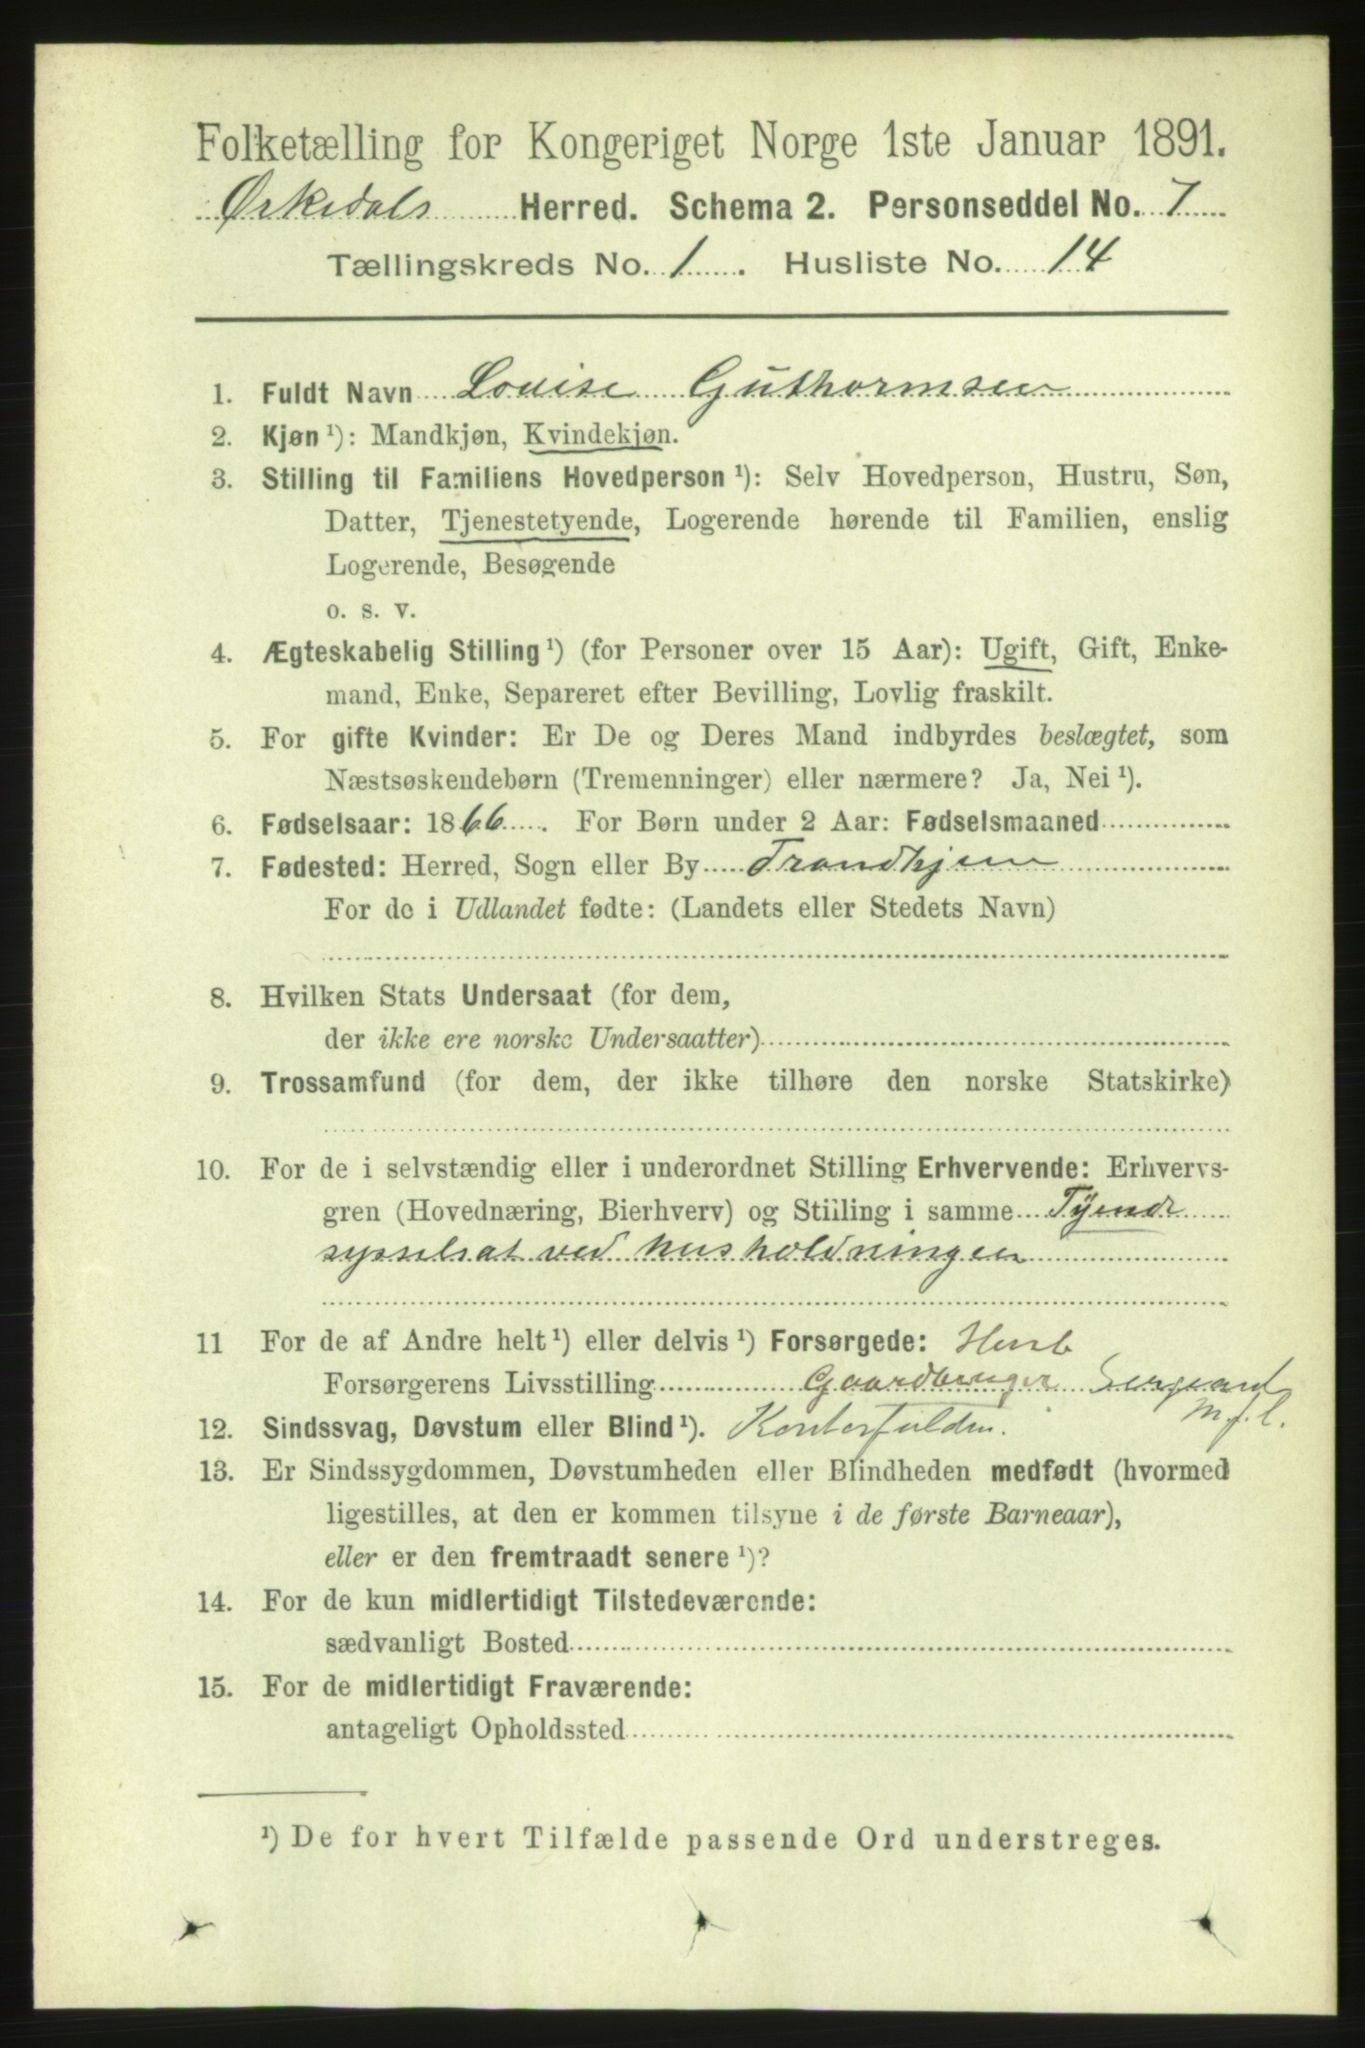 Folketælling for Kongeriget Norge 1ste Januar 1891.
Ørkedals Herred. Schema 2. Personseddel No. 7
Tællingskreds No. 1. Husliste No. 14
1. Fuldt Navn Louise Guthormsen
2. Kjøn ¹): Mandkjøn, Kvindekjøn.
3. Stilling til Familiens Hovedperson ¹): Selv Hovedperson, Hustru, Søn,
Datter, Tjenestetyende, Logerende hørende til Familien, enslig
Logerende, Besøgende
o. s. v.
4. Ægteskabelig Stilling ¹) (for Personer over 15 Aar): Ugift, Gift, Enke-
mand, Enke, Separeret efter Bevilling, Lovlig fraskilt.
5. For gifte Kvinder: Er De og Deres Mand indbyrdes beslægtet, som
Næstsøskendebørn (Tremenninger) eller nærmere? Ja, Nei ¹).
6. Fødselsaar: 1866. For Børn under 2 Aar: Fødselsmaaned
7. Fødested: Herred, Sogn eller By Trondhjem
For de i Udlandet fødte: (Landets eller Stedets Navn)
8. Hvilken Stats Undersaat (for dem,
der ikke ere norske Undersaatter)
9. Trossamfund (for dem, der ikke tilhøre den norske Statskirke)
10. For de i selvstændig eller i underordnet Stilling Erhvervende: Erhvervs-
gren (Hovednæring, Bierhverv) og Stilling i samme Tyende
sysselsat ved husholdningen
11 For de af Andre helt ¹) eller delvis ¹) Forsørgede:
Forsørgerens Livsstilling Gaardbruger Sergeant
12. Sindssvag, Døvstum eller Blind ¹). m.f.l.
13. Er Sindssygdommen, Døvstumheden eller Blindheden medfødt (hvormed
ligestilles, at den er kommen tilsyne i de første Barneaar),
eller er den fremtraadt senere ¹)?
14. For de kun midlertidigt Tilstedeværende:
sædvanligt Bosted
15. For de midlertidigt Fraværende:
antageligt Opholdssted
¹) De for hvert Tilfælde passende Ord understreges.